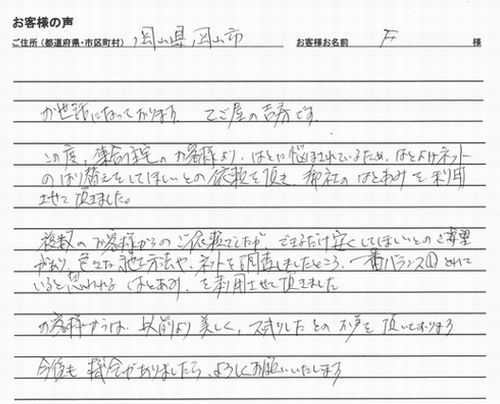 お客様の声
ご住所（都道府県・市区町村） 岡山県岡山市 お客様お名前 F 様
お世話になっております。 てご屋の吉秀です。
この度、集合住宅のお客様より、はとに悩まされているため、はとよけネット
のはり替えをしてほしいとの依頼を頂き、御社のはとあみを利用
させて頂きました。
複数のお客様からのご依頼でしたが、できるだけ安くしてほしいとのご要望
があり、色々な施工方法や、ネットを調査しましたところ、一番バランスのとれて
いると思われるはとあみを利用させて頂きました
お客様からは、以前より美しく、スッキリしたとのお声を頂いております
今後も機会がありましたら、よろしくお願いいたします